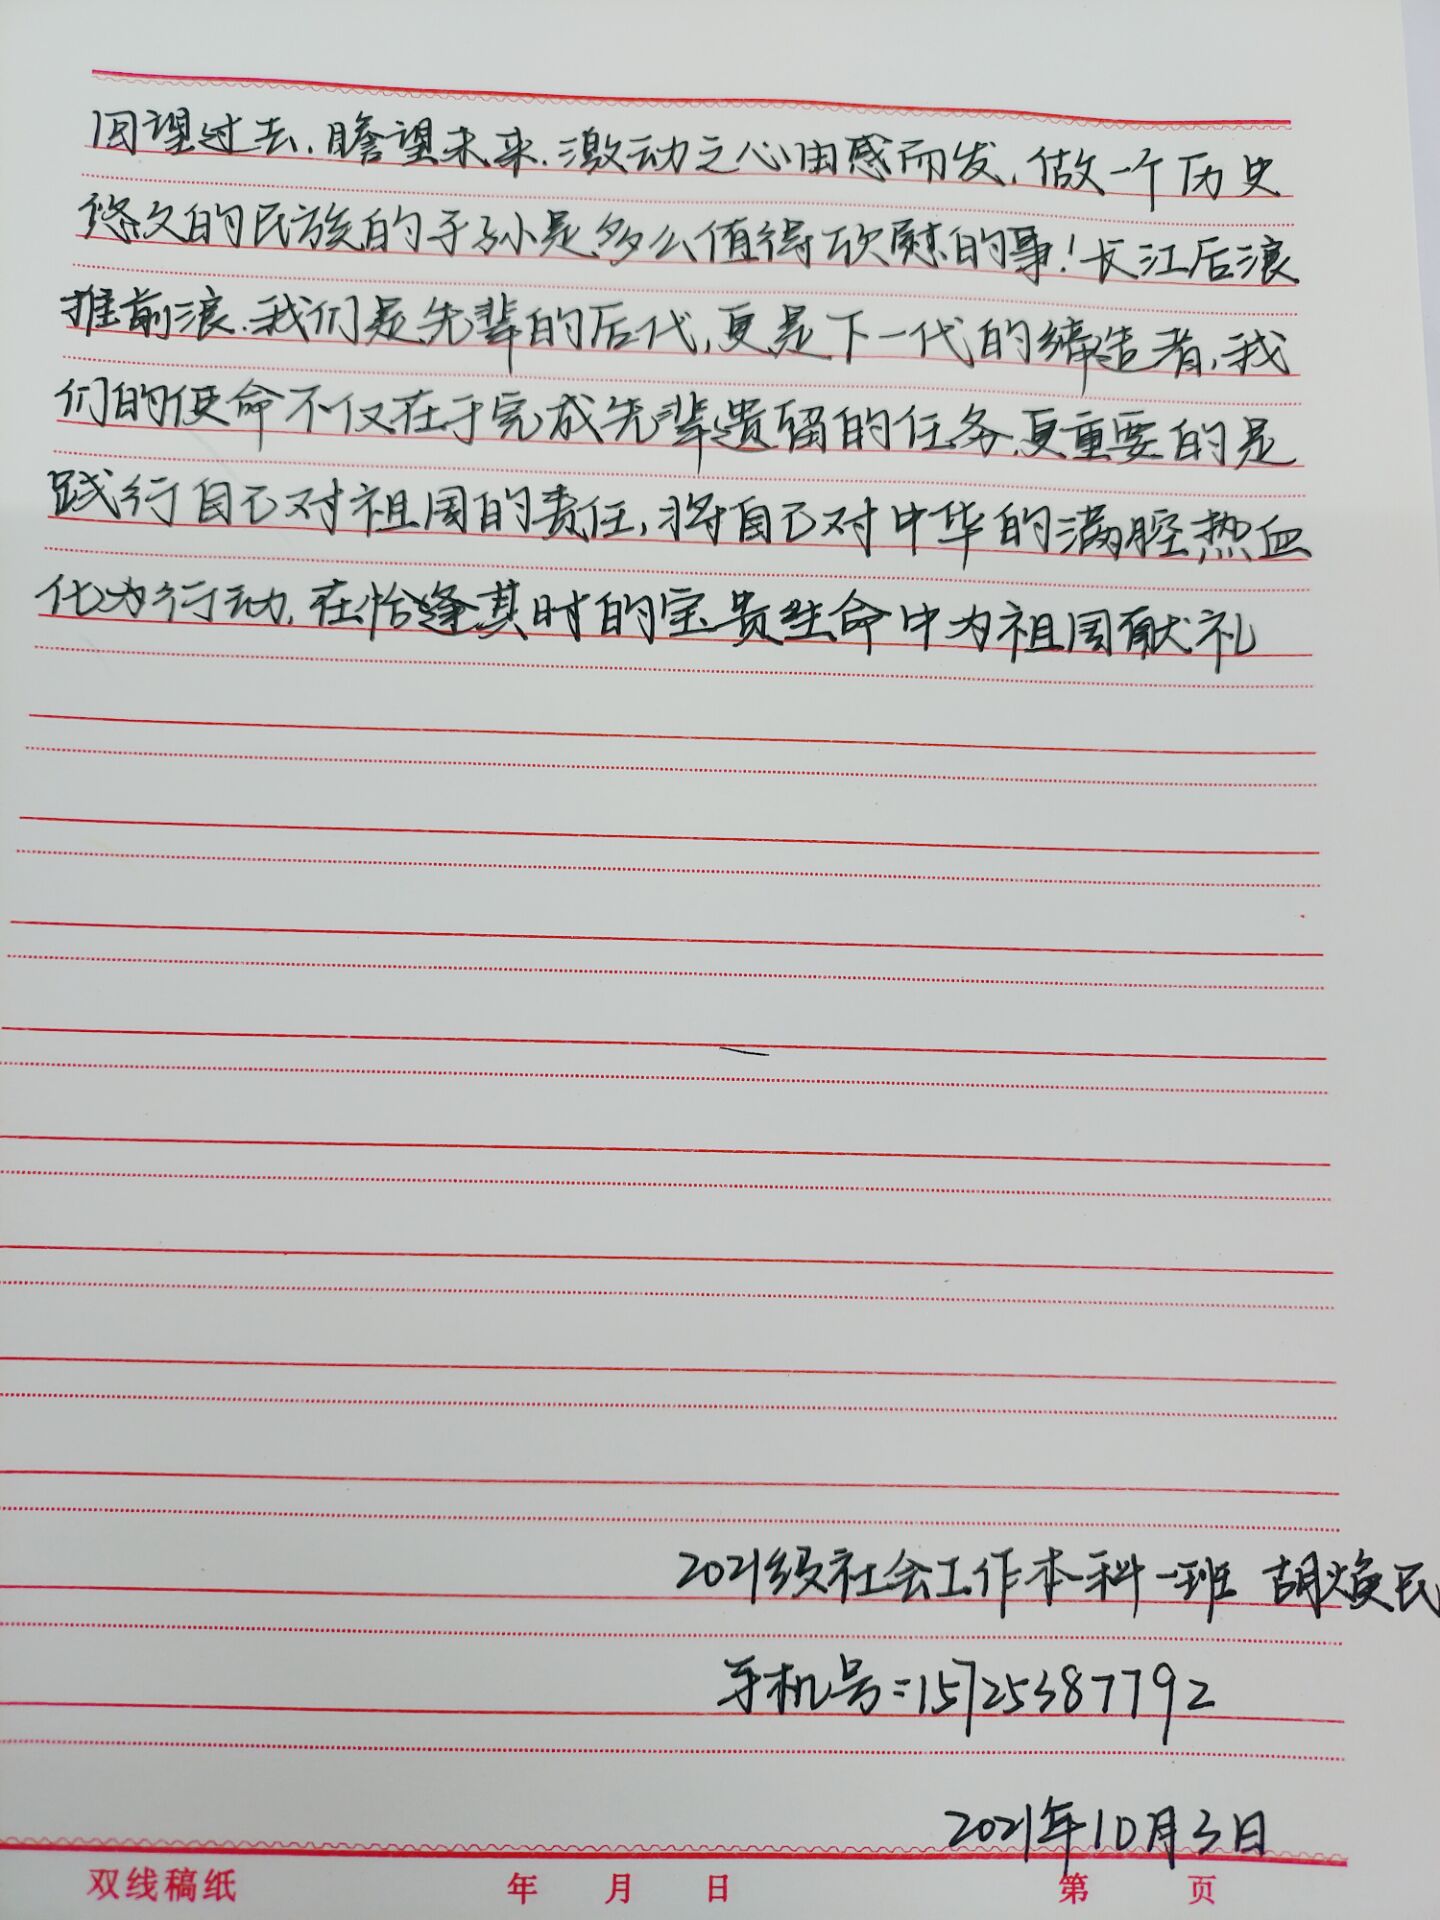 回望过去，瞻望未来，激动之心由感而发，做一个历史
悠久的民族的子孙是多么值得欣慰的事！长江后浪
推前浪，我们是先辈的后代，更是下一代的缔造者，我
们的使命不仅在于完成先辈遗留的任务，更重要的是
践行自己对祖国的责任，将自己对中华的满腔热血
化为行动，在恰逢其时的宝贵生命中为祖国献礼
2021级社会工作本科一班 胡焕民
手机号：15725387792
2021年10月3日
双线稿纸 年 月 日 第 页